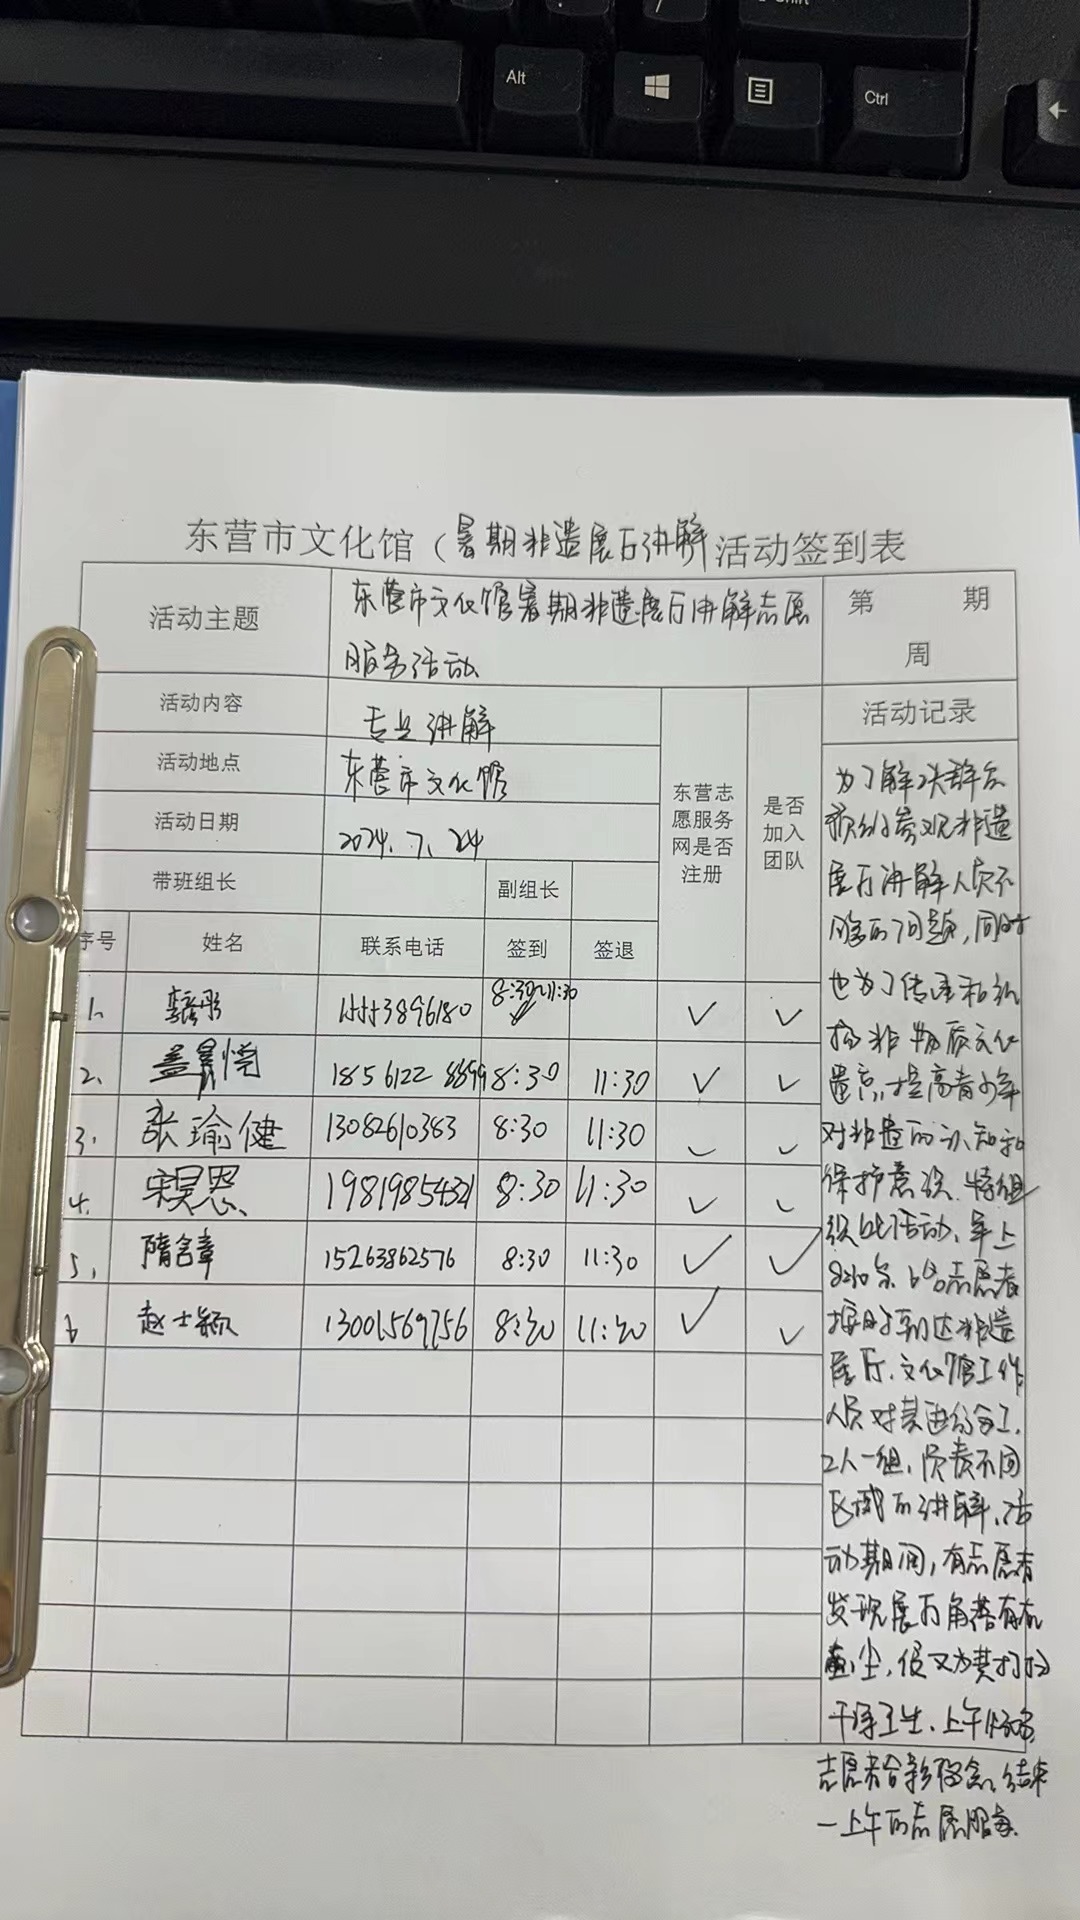 Shift
Alt
Ctrl
东营市文化馆（暑期非遗展厅讲解活动签到表
活动主题
东营市文化馆暑期非遗展厅讲解志愿
服务活动
第 期
周
活动内容
专业讲解
活动地点
东营市文化馆
活动日期
2024.7.24
东营志
愿服务
网是否
注册
是否
加入
团队
活动记录
带班组长 副组长
序号 姓名 联系电话 签到 签退
1. 8:30~11:30 ✓ ✓
2. 盖 1856122 8899 8:30 11:30 ✓ ✓
3. 张瑜健 13082610383 8:30 11:30 ✓ ✓
4. 宋昊恩 19819854321 8:30 11:30 ✓ ✓
5. 隋含章 15263862576 8:30 11:30 ✓ ✓
6 赵士颖 13001569756 8:30 11:30 ✓ ✓
为了解决群众
预约参观非遗
展厅讲解人员不
够的问题,同时
也为了传承和弘
扬非物质文化
遗产,提高青少年
对非遗的认知和
保护意识.特组
织此活动,早上
8:30分 6名志愿者
按时到达非遗
展厅.文化馆工作
人员对其进行分工,
2人一组,负责不同
区域的讲解.活
动期间,有志愿者
发现展厅角落有
灰尘,便又为其打扫
干净卫生.上午
志愿者合影留念,结束
一上午的志愿服务.